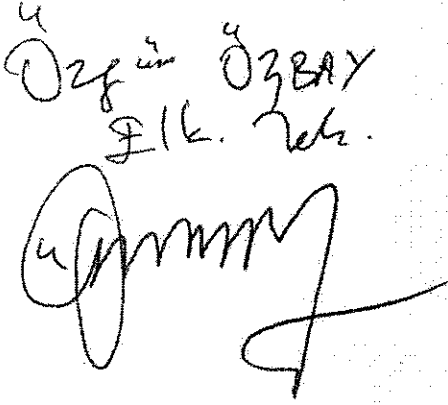 Özgün ÖZBAY
Elk. Tek.